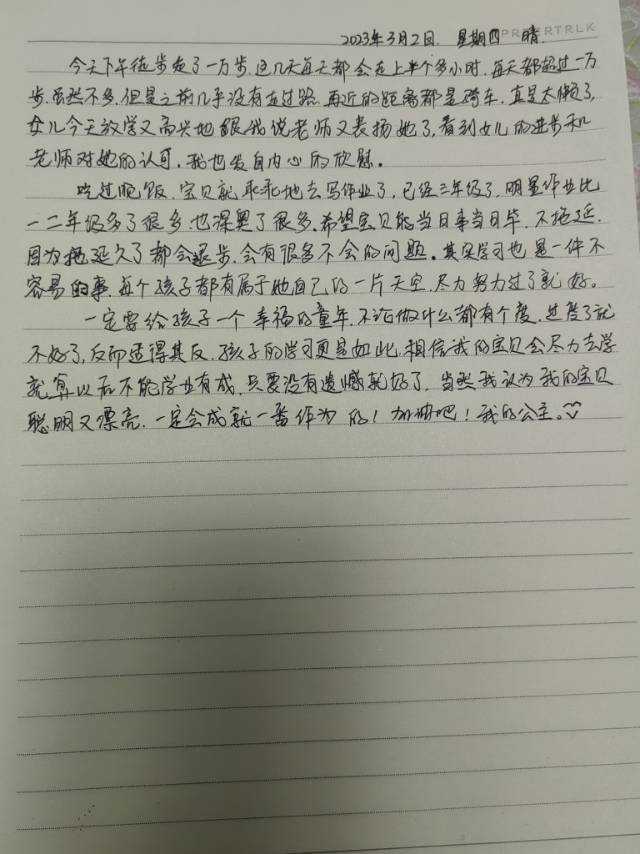 2023年3月2日. 星期四 晴.
PAPERTRLK
今天下午徒步走了一万步.这几天每天都会走上半个多小时.每天都超过一万
步.虽然不多.但是之前几乎没有走过路.再近的距离都是骑车.真是太懒了,
女儿今天放学又高兴地跟我说老师又表扬她了,看到女儿的进步和
老师对她的认可,我也发自内心的欣慰。
吃过晚饭.宝贝就乖乖地去写作业了,已经三年级了.明显作业比
一二年级多了很多.也深奥了很多.希望宝贝能当日事当日毕.不拖延.
因为拖延久了都会退步.会有很多不会的问题。其实学习也是一件不
容易的事.每个孩子都有属于她自己的一片天空.尽力努力过了就好。
一定要给孩子一个幸福的童年.不论做什么都有个度.过度了就
不好了,反而适得其反.孩子的学习更是如此,相信我的宝贝会尽力去学
就算以后不能学业有成.只要没有遗憾就好了.当然我认为我的宝贝
聪明又漂亮.一定会成就一番作为的!加油吧!我的公主。